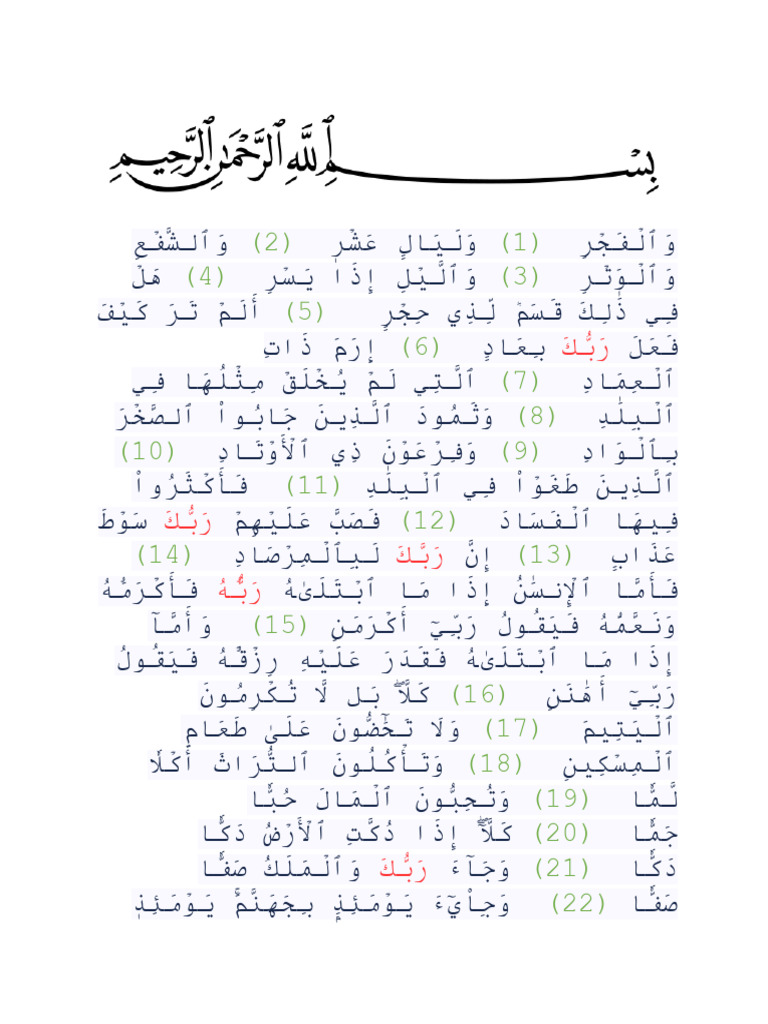 بِسْمِ ٱللَّهِ ٱلرَّحْمَٰنِ ٱلرَّحِيمِ
وَٱلْفَجْرِ (1) وَلَيَالٍ عَشْرٍ (2) وَٱلشَّفْعِ
وَٱلْوَتْرِ (3) وَٱلَّيْلِ إِذَا يَسْرِ (4) هَلْ
فِي ذَٰلِكَ قَسَمٌ لِّذِي حِجْرٍ (5) أَلَمْ تَرَ كَيْفَ
فَعَلَ رَبُّكَ بِعَادٍ (6) إِرَمَ ذَاتِ
ٱلْعِمَادِ (7) ٱلَّتِي لَمْ يُخْلَقْ مِثْلُهَا فِي
ٱلْبِلَٰدِ (8) وَثَمُودَ ٱلَّذِينَ جَابُوا۟ ٱلصَّخْرَ
بِٱلْوَادِ (9) وَفِرْعَوْنَ ذِي ٱلْأَوْتَادِ (10)
ٱلَّذِينَ طَغَوْا۟ فِي ٱلْبِلَٰدِ (11) فَأَكْثَرُوا۟
فِيهَا ٱلْفَسَادَ (12) فَصَبَّ عَلَيْهِمْ رَبُّكَ سَوْطَ
عَذَابٍ (13) إِنَّ رَبَّكَ لَبِٱلْمِرْصَادِ (14)
فَأَمَّا ٱلْإِنسَٰنُ إِذَا مَا ٱبْتَلَىٰهُ رَبُّهُۥ فَأَكْرَمَهُۥ
وَنَعَّمَهُۥ فَيَقُولُ رَبِّيٓ أَكْرَمَنِ (15) وَأَمَّآ
إِذَا مَا ٱبْتَلَىٰهُ فَقَدَرَ عَلَيْهِ رِزْقَهُۥ فَيَقُولُ
رَبِّيٓ أَهَٰنَنِ (16) كَلَّاۖ بَل لَّا تُكْرِمُونَ
ٱلْيَتِيمَ (17) وَلَا تَحَٰٓضُّونَ عَلَىٰ طَعَامِ
ٱلْمِسْكِينِ (18) وَتَأْكُلُونَ ٱلتُّرَاثَ أَكْلًا
لَّمًّا (19) وَتُحِبُّونَ ٱلْمَالَ حُبًّا
جَمًّا (20) كَلَّآۖ إِذَا دُكَّتِ ٱلْأَرْضُ دَكًّا
دَكًّا (21) وَجَآءَ رَبُّكَ وَٱلْمَلَكُ صَفًّا
صَفًّا (22) وَجِا۟يٓءَ يَوْمَئِذٍۭ بِجَهَنَّمَۚ يَوْمَئِذٍ